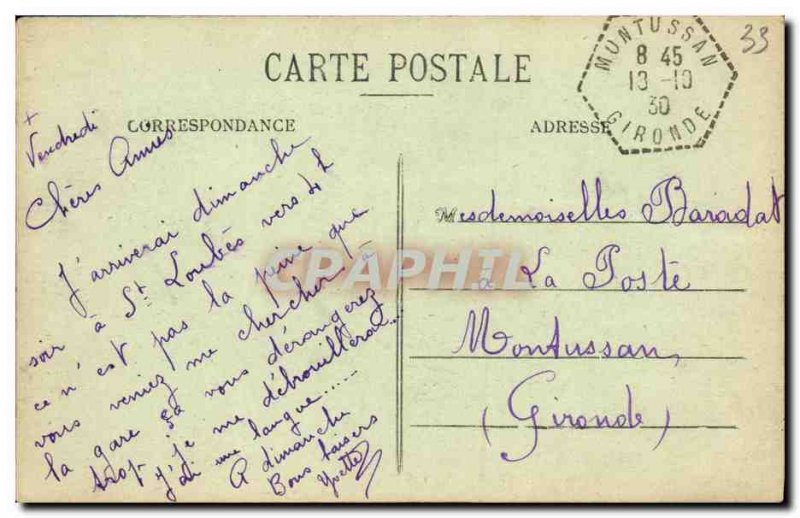 33
MONTUSSAN
8 45
18-10
30
GIRONDE
CARTE POSTALE
CORRESPONDANCE
ADRESSE
+
Vendredi
Chères Amies
J'arriverai dimanche
soir à St Loubès vers 4h
ce n'est pas la peine que
vous veniez me chercher à
la gare ça vous dérangerez
trop je me débrouillerai...
j'ai une langue.....
A dimanche
Bons baisers
Yvette
Mesdemoiselles Baradat
à La Poste
Montussan,
(Gironde)
CPAPHIL